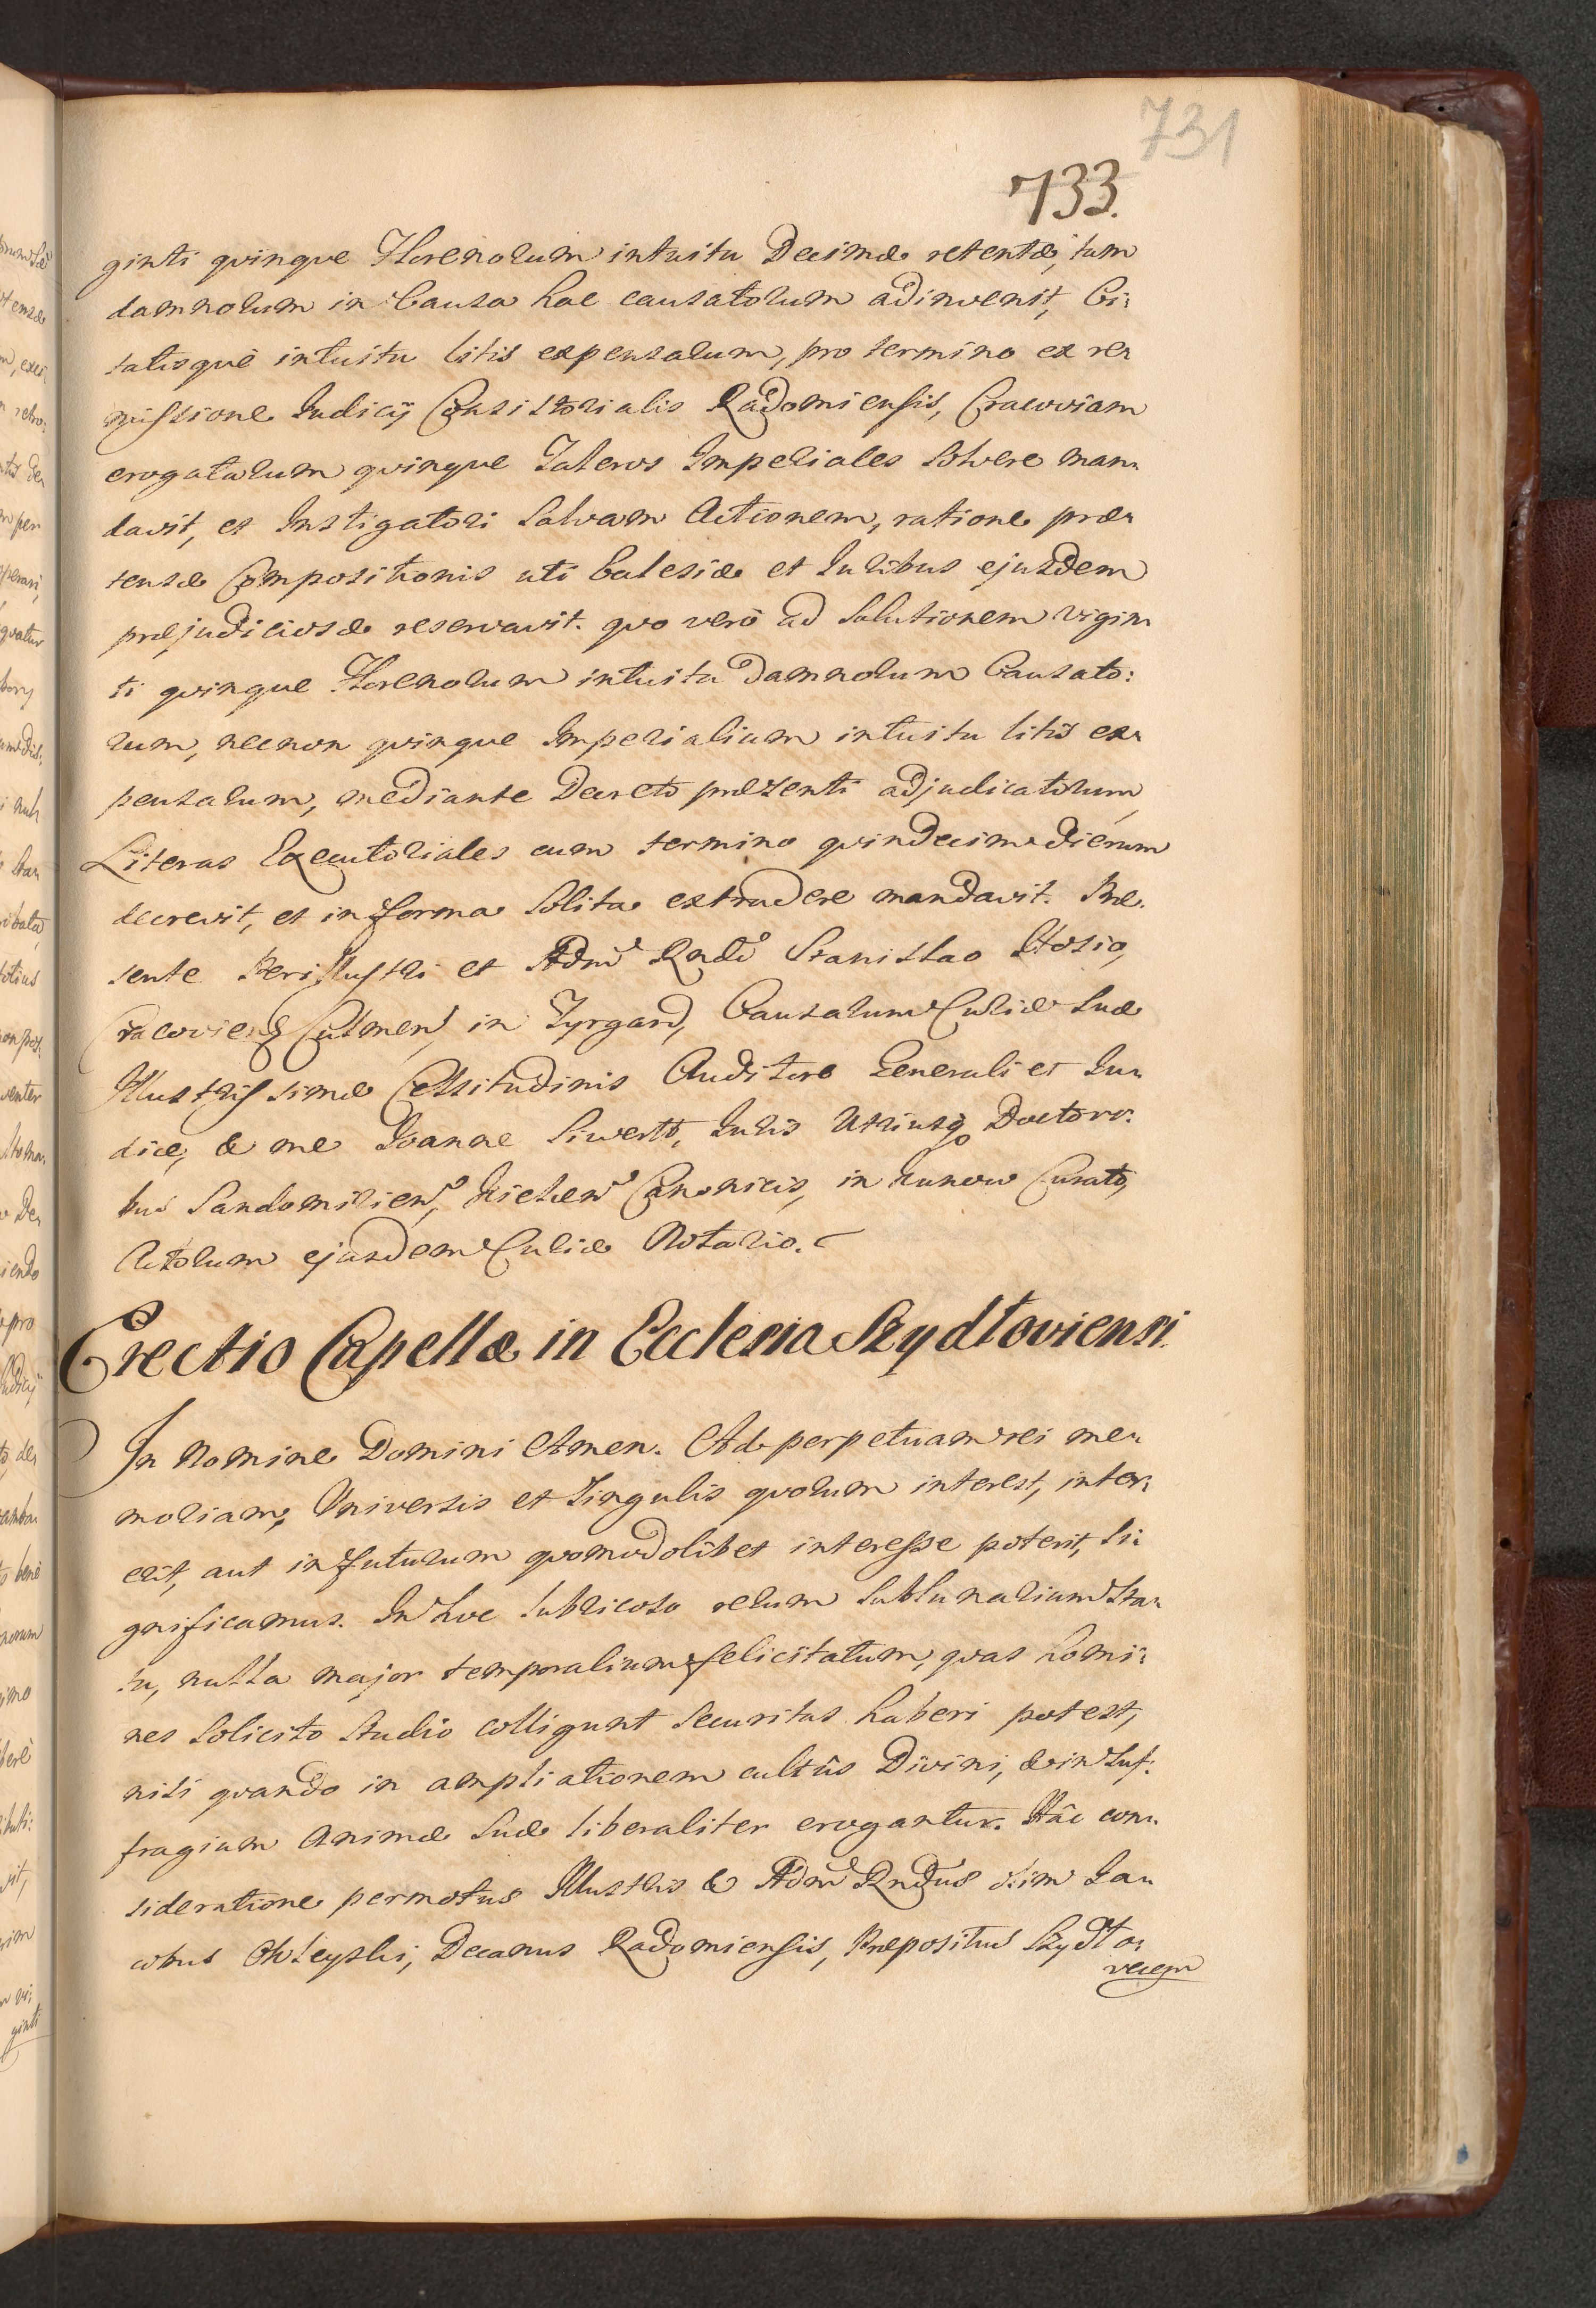 731
733.
ginti quinque Florenorum intuitu Decimæ retentæ, tum
damnorum in Causa hac causatorum adinvenit, Ci:
tatisque intuitu litis expensarum, pro termino ex re:
missione Judicij Consistorialis Radomiensis, Cracoviam
erogatarum quinque Taleros Imperiales solvere man:
davit, et Instigatori salvam Actionem, ratione præ:
tensæ Compositionis uti Ecclesiæ et Juribus ejusdem
præjudiciosæ reservavit. quo verò ad solutionem vigin:
ti quinque Florenorum intuitu damnorum Causato:
rum, necnon quinque Imperialium intuitu litis ex:
pensarum, mediante Decreto præsenti adjudicatorum,
Literas Executoriales cum termino quindecim dierum
decrevit, et in forma solita extradere mandavit. Præ:
sente Perillustri et Adm Rndo Stanislao Hosio,
Cracovien, Culmen, in Tyrgard, Causarum Curiæ Suæ
Illustrissimæ Celsitudinis Auditore Generali et Ju:
dice, & me Joanne Siwertt, Juris Utriusq Doctori:
bus Sandomirien, Kielcen Canonicis, in Kunow Curato,
Actorum ejusdem Curiæ Notario.
Erectio Capellæ in Ecclesia Szydłoviensi.
In Nomine Domini Amen. Ad perpetuam rei me:
moriam, Universis et singulis quorum interest, inter:
erit, aut in futurum quomodolibet interesse poterit, si:
gnificamus. In hoc lubricoso rerum sublunarium sta:
tu, nulla major temporalium felicitatum, quas homi:
nes solicito studio colligunt securitas haberi potest,
nisi quando in ampliationem cultûs Divini, & in suf:
fragium animæ suæ liberaliter erogantur. Hâc con:
sideratione permotus Illustris & Adm Rndus olim Ja:
cobus Decanus Radomiensis, Præpositus Szydło:
vecen